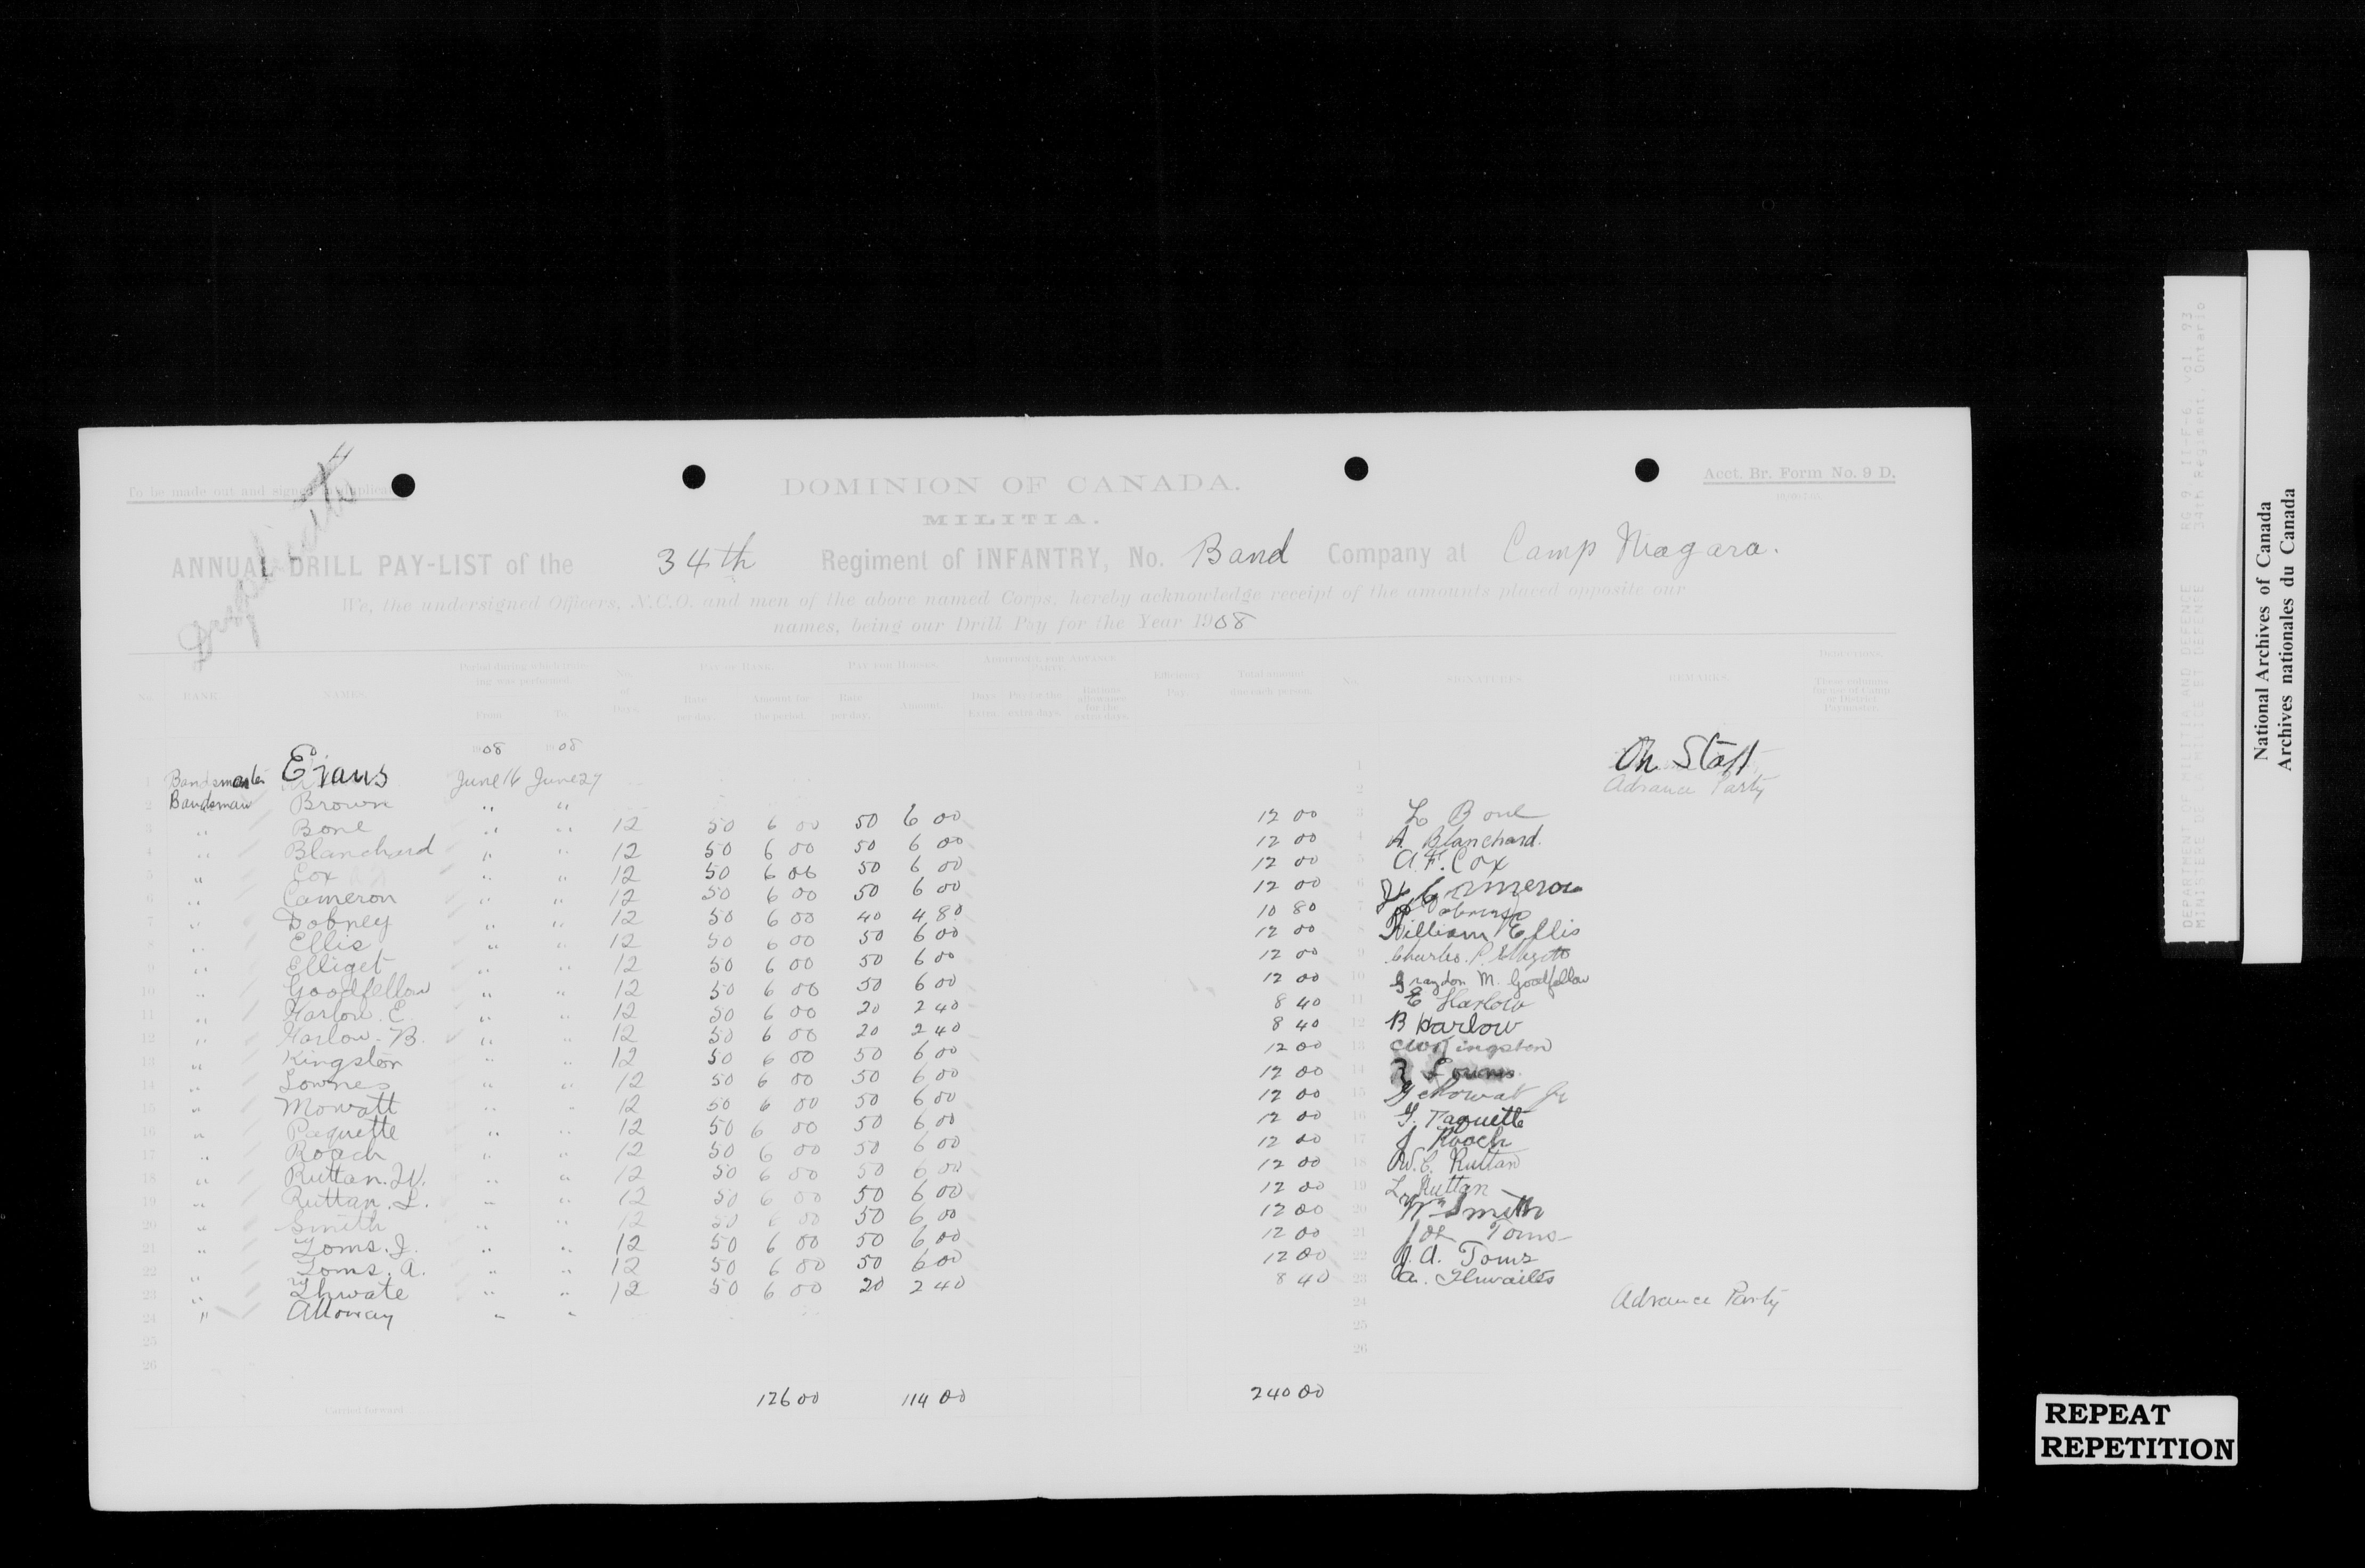 To be made out and signed in
Duplicate
DOMINION OF CANADA.
Acct. Br. Form No. 9 D.
MILITIA.
ANNUAL DRILL PAY-LIST of the 34th Regiment of INFANTRY, No. Band Company at Camp Niagara.
We, the undersigned Officers, N.C.O. and men of the above named Corps, hereby acknowledge receipt of the amounts placed opposite our
names, being our Drill Pay for the Year 1908
No. RANK. NAMES. Period during which training was performed. From To No. of Days. PAY OF RANK. Rate per day. Amount for the period. Rate per day. Amount. Days Extra. Pay for the extra days. Rations allowance for the extra days. Efficiency Pay. Total amount due each person. No. SIGNATURES. REMARKS.
1908 1908
1 Bandsmaster Evans June 16 June 27 1 On Staff
2 Bandsman Brown " " 2 Advance Party
3 " Bone " " 12 50 6 00 50 6 00 12 00 3 L Bone
4 " Blanchard " " 12 50 6 00 50 6 00 12 00 4 A. Blanchard.
5 " Cox " " 12 50 6 00 50 6 00 12 00 5 A. F. Cox
6 " Cameron " " 12 50 6 00 50 6 00 12 00 6 Cameron
7 " Dobney " " 12 50 6 00 40 4 80 10 80 7
8 " Ellis " " 12 50 6 00 50 6 00 12 00 8 William Ellis
9 " Elliget " " 12 50 6 00 50 6 00 12 00 9 Charles P.
10 " Goodfellow " " 12 50 6 00 50 6 00 12 00 10 Graydon M. Goodfellow
11 " Harlow. E. " " 12 50 6 00 20 2 40 8 40 11 E Harlow
12 " Harlow. B. " " 12 50 6 00 20 2 40 8 40 12 B Harlow
13 " Kingston " " 12 50 6 00 50 6 00 12 00 13 Kingston
14 " Lownes " " 12 50 6 00 50 6 00 12 00 14 Lownes
15 " Mowatt " " 12 50 6 00 50 6 00 12 00 15 Mowat Jr
16 " Paquette " " 12 50 6 00 50 6 00 12 00 16 G. Paquette
17 " Roach " " 12 50 6 00 50 6 00 12 00 17 J Roach
18 " Ruttan. W. " " 12 50 6 00 50 6 00 12 00 18 W. C. Ruttan
19 " Ruttan. L. " " 12 50 6 00 50 6 00 12 00 19 L. Ruttan
20 " Smith " " 12 50 6 00 50 6 00 12 00 20 Wm Smith
21 " Toms. J. " " 12 50 6 00 50 6 00 12 00 21 Jos Toms
22 " Toms. A. " " 12 50 6 00 50 6 00 12 00 22 A. Toms
23 " Thwate " " 12 50 6 00 20 2 40 8 40 23 A. Thwaites
24 " Alloway " " 24 Advance Party
25 25
26 26
126 00 114 00 240 00
Carried forward
DEPARTMENT OF MILITIA AND DEFENCE RG 9, II-F-6, vol. 93
MINISTÈRE DE LA MILICE ET DÉFENSE 34th Regiment, Ontario
National Archives of Canada
Archives nationales du Canada
REPEAT
REPETITION